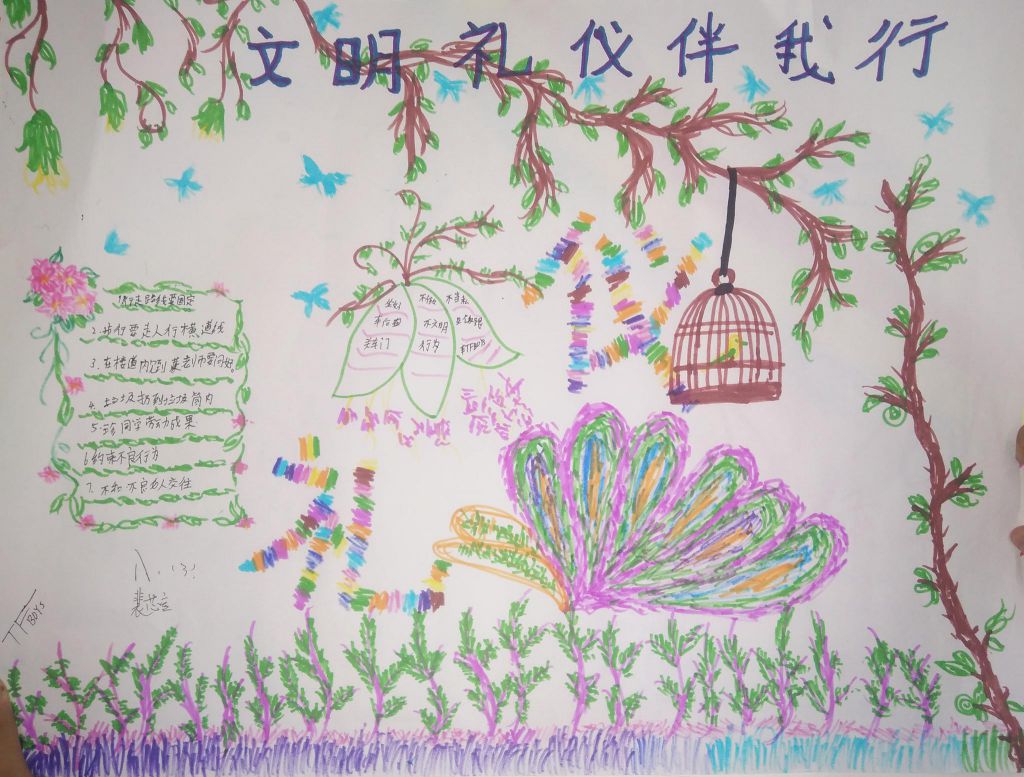 文明礼仪伴我行
仪
1.行走路线要固定
2.步行要走人行横道线
3.在楼道内遇到某老师要问好
4.垃圾扔到垃圾筒内
5.珍惜同学劳动成果
6.约束不良行为
7.不和不良的人交往
礼
不文明
行为
关门
TFBOYS
八.(3)
裴芯立
TF
BOYS